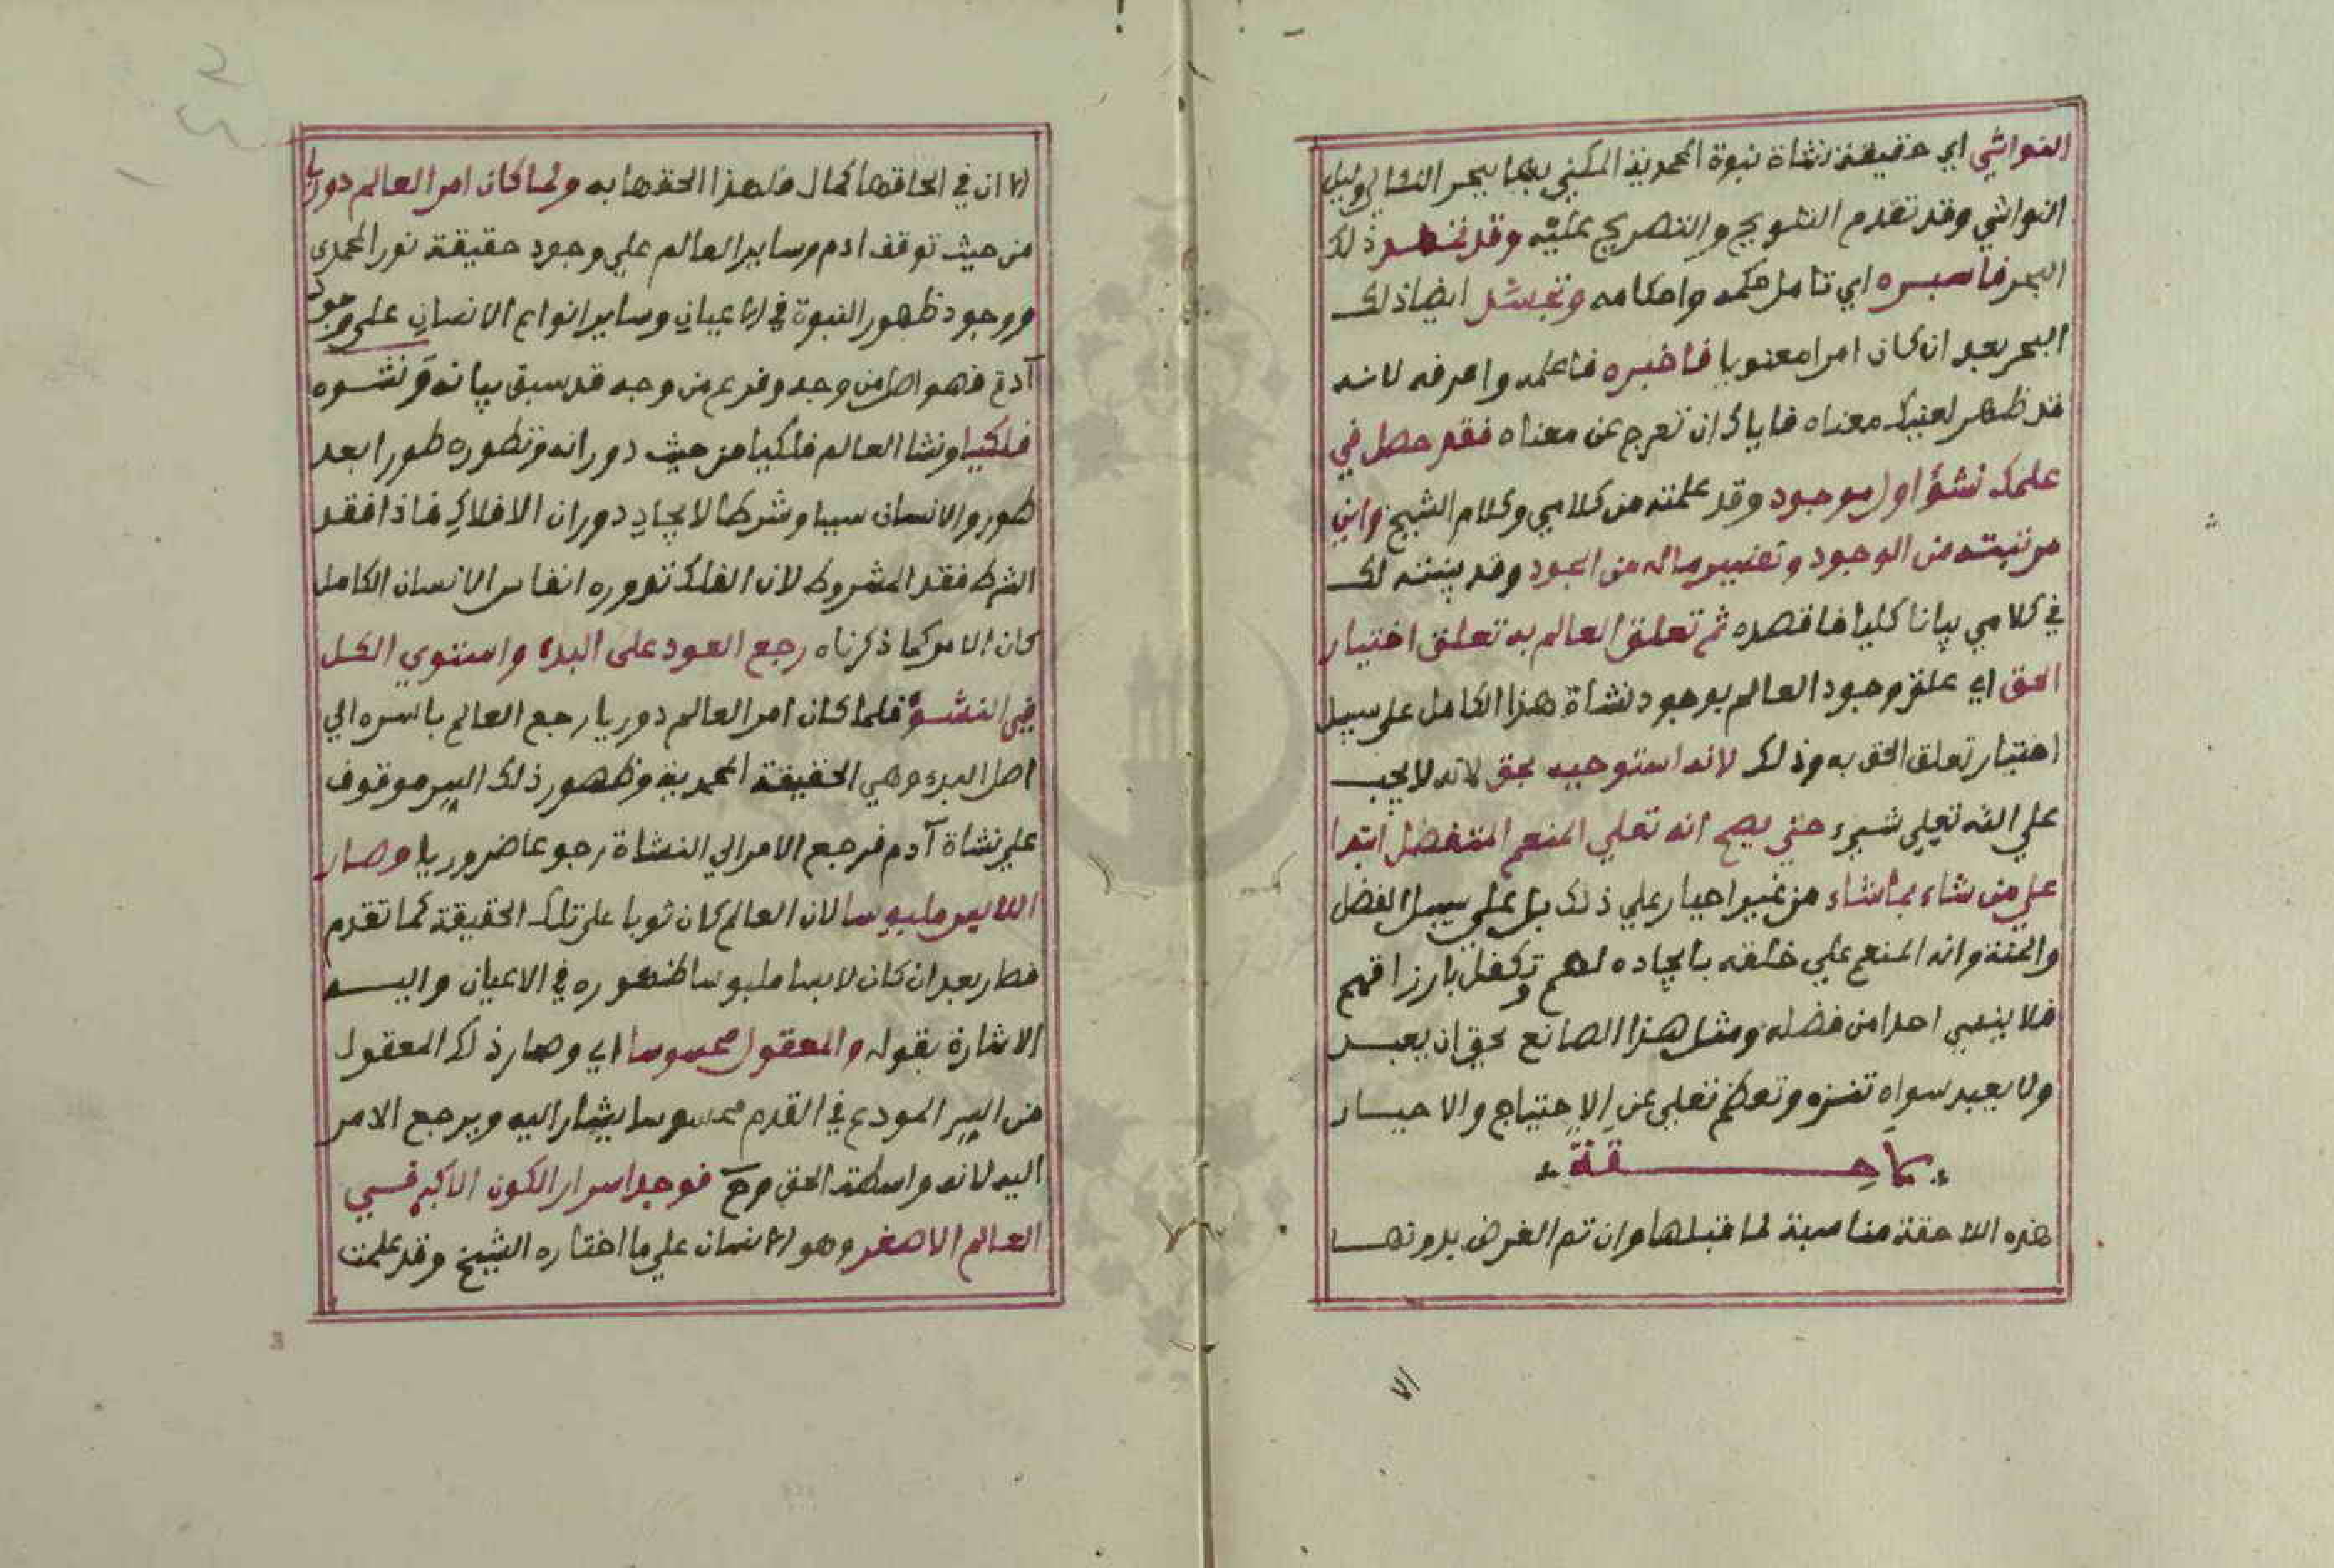 النواشي اي حقيقة نشاة نبوة المحمدية المكني بها ببحر النشا وليل
النواشي وقد تقدم التلويح والتصريح عليه وقد تخطر ذلك
البحر فاسبره اي تامل حكمه واحكامه وتجسد ايضا ذلك
البحر بعد ان كان امرا معنويا فاخبره فاعلمه واعرفه لانه
قد ظهر لعينك معناه فاياك ان تعرج عن معناه فقد حصل في
علمك نشؤ اول موجود وقد علمته من كلامي وكلام الشيخ واين
مرتبته من الوجود وتعيير ماله من الجود وقد بينته لك
في كلامي بيانا كليا فاقصده ثم تعلق العالم به تعلق اختيار
الحق اي علق وجود العالم بوجود نشاة هذا الكامل علي سبيل
اختيار تعلق الحق به وذلك لانه استوجبه بحق لانه لا يجب
علي الله تعلي شيء حتي يصح انه تعلي المنعم المتفضل ابتدا
علي من شاء بما شاء من غير اجبار علي ذلك بل علي سبيل الفضل
والمنة وانه المنعم علي خلقه بايجاده لهم وتكفل بارزاقهم
فلا ينسي احدا من فضله ومثل هذا الصانع بحق ان يعبد
ولا يعبد سواه تنزه وتعظم تعلي عن الاحتياج والاجبار
لاحقة
هذه اللاحقة مناسبة لما قبلها وان تم الغرض بدونها
الا
الا ان في الحاقها كمال فلهذا الحقها به ولما كان امر العالم دوريا
من حيث توقف ادم وساير العالم علي وجود حقيقة نور المحمدي
ووجود ظهور النبوة في الاعيان وساير انواع الانسان علي وجود
آدم فهو اصل من وجه وفرع من وجه قد سبق بيانه ونشوه
فلكيا ونشا العالم فلكيا من حيث دورانه وتطوره طورا بعد
طور والانسان سببا وشرطا لايجاد دوران الافلاك فاذا فقد
الشرط فقد المشروط لان الفلك تدوره انفاس الانسان الكامل
كان الامر كما ذكرناه رجع العود علي البدء واستوي الكل
في النشؤ فلما كان امر العالم دوريا رجع العالم باسره الي
اصل البدء وهي الحقيقة المحمدية وظهور ذلك السر موقوف
علي نشاة آدم فرجع الامر الي النشاة رجوعا ضروريا وصار
اللابس ملبوسا لان العالم كان ثوبا علي تلك الحقيقة كما تقدم
فصار بعد ان كان لابسا ملبوسا لظهوره في الاعيان واليه
الاشارة بقوله والمعقول محسوسا اي وصار ذلك المعقول
من السر المودع في القدم محسوسا يشار اليه ويرجع الامر
اليه لانه واسطة الحق وح فوجد اسرار الكون الاكبر في
العالم الاصغر وهو الانسان علي ما اختاره الشيخ وقد علمت